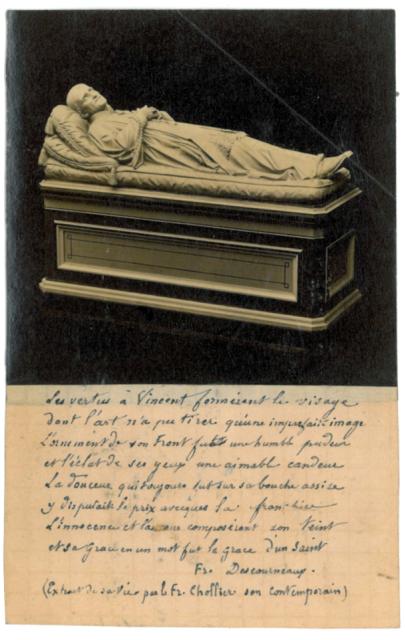 Les vertus à Vincent formèrent le visage
dont l'art n'a pu tirer qu'une imparfaite image
L'ornement de son Front fut une humble pudeur
et l'éclat de ses yeux une aimable candeur
La douceur qui toujours fut sur sa bouche assise
y disputait le prix avecques la franchise
L'innocence et la composèrent son teint
et sa Grace en un mot fut la grace d'un Saint
Fr. Descourneaux.
(Extrait de sa Vie par le Fr. Chollier son contemporain)